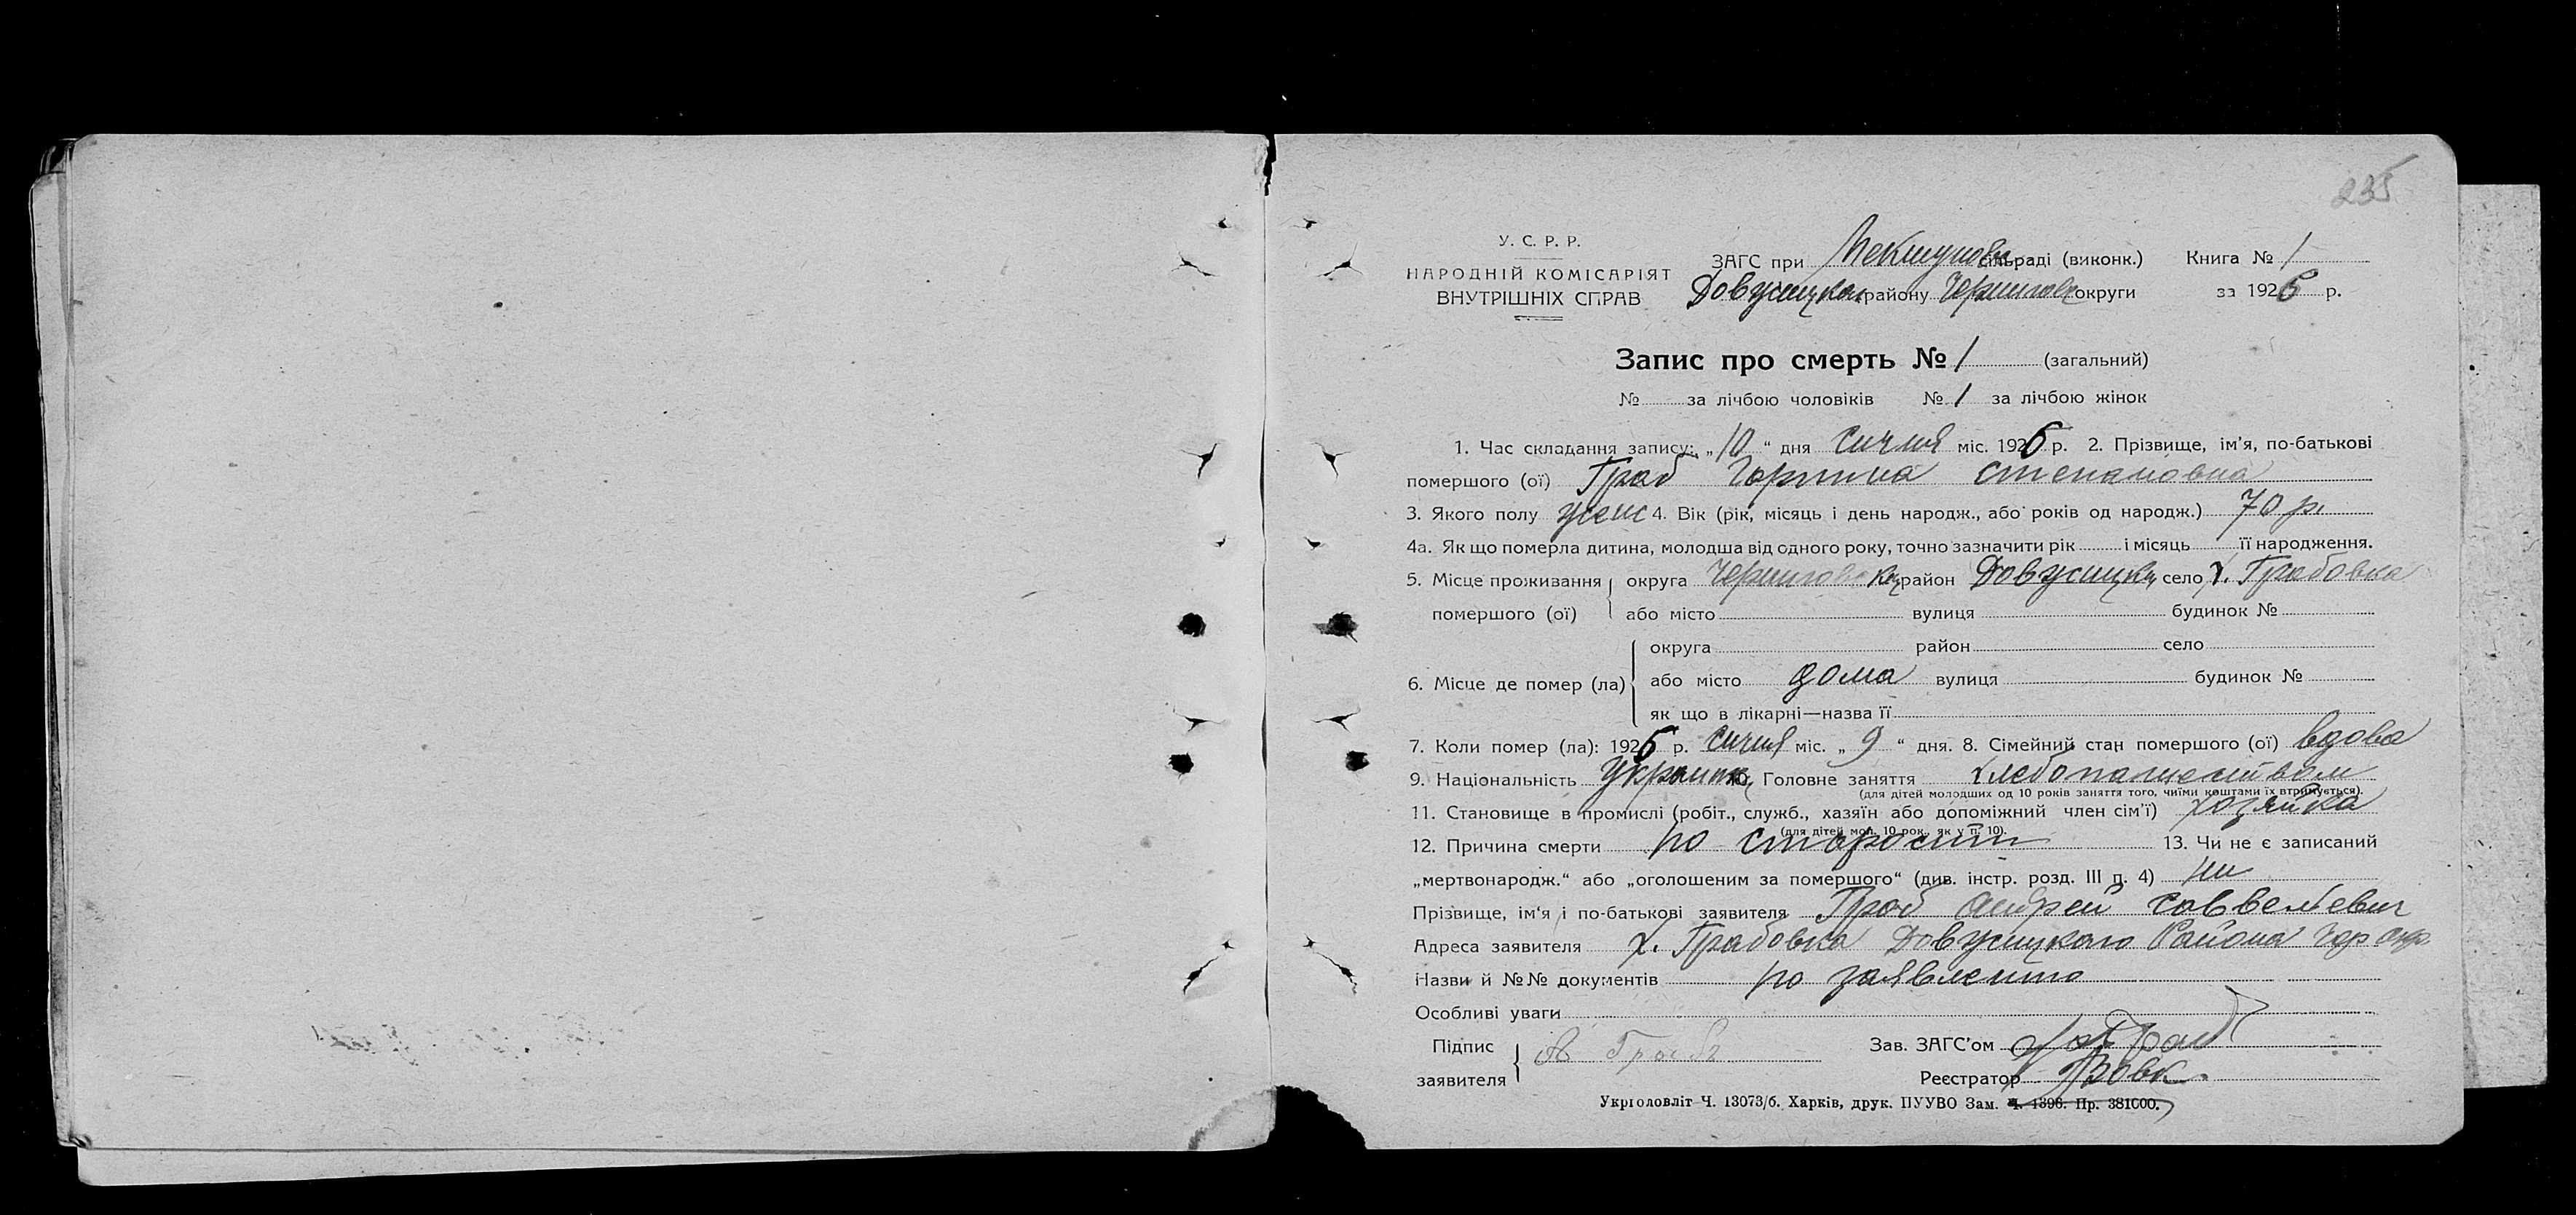 235
У. С. Р. Р.
НАРОДНІЙ КОМІСАРІЯТ
ВНУТРІШНІХ СПРАВ
ЗАГС при сільраді (виконк.) Книга № 1
Довжицком району Черниговск округи за 1926 р.
Запис про смерть № 1 (загальний)
№ за лічбою чоловіків № 1 за лічбою жінок
1. Час складання запису: „10“ дня Сичня міс. 1926 р. 2. Прізвище, ім’я, по-батькові
помершого (ої) Граб Горпина степановна
3. Якого полу женс 4. Вік (рік, місяць і день народж., або років од народж.) 70 р.
4а. Як що померла дитина, молодша від одного року, точно зазначити рік і місяць її народження.
5. Місце проживання помершого (ої) округа Черниговска район Довжицки село х. Грабовка
або місто вулиця будинок №
6. Місце де помер (ла) округа район село
або місто дома вулиця будинок №
як що в лікарні—назва її
7. Коли помер (ла): 1926 р. Сичня міс. „9“ дня. 8. Сімейний стан помершого (ої) вдова
9. Національність Украинка 10. Головне заняття хлебопашеством
(для дітей молодших од 10 років заняття того, чиїми коштами їх втримується).
11. Становище в промислі (робіт., служб., хазяїн або допоміжний член сім’ї) хозяйка
(для дітей мол. 10 рок., як у п. 10).
12. Причина смерти по старости 13. Чи не є записаний
„мертвонародж.“ або „оголошеним за помершого“ (див. інстр. розд. III п. 4) ни
Прізвище, ім‘я і по-батькові заявителя Граб Андрей Савельевич
Адреса заявителя х. Грабовка Довжицкого Района Чер окр
Назви й №№ документів по заявлению
Особливі уваги
Підпис заявителя А Граб
Зав. ЗАГС’ом Граб
Реєстратор Вовк
Укрголовліт Ч. 13073/6. Харків, друк. ПУУВО Зам. Ч. 1396. Пр. 381000.